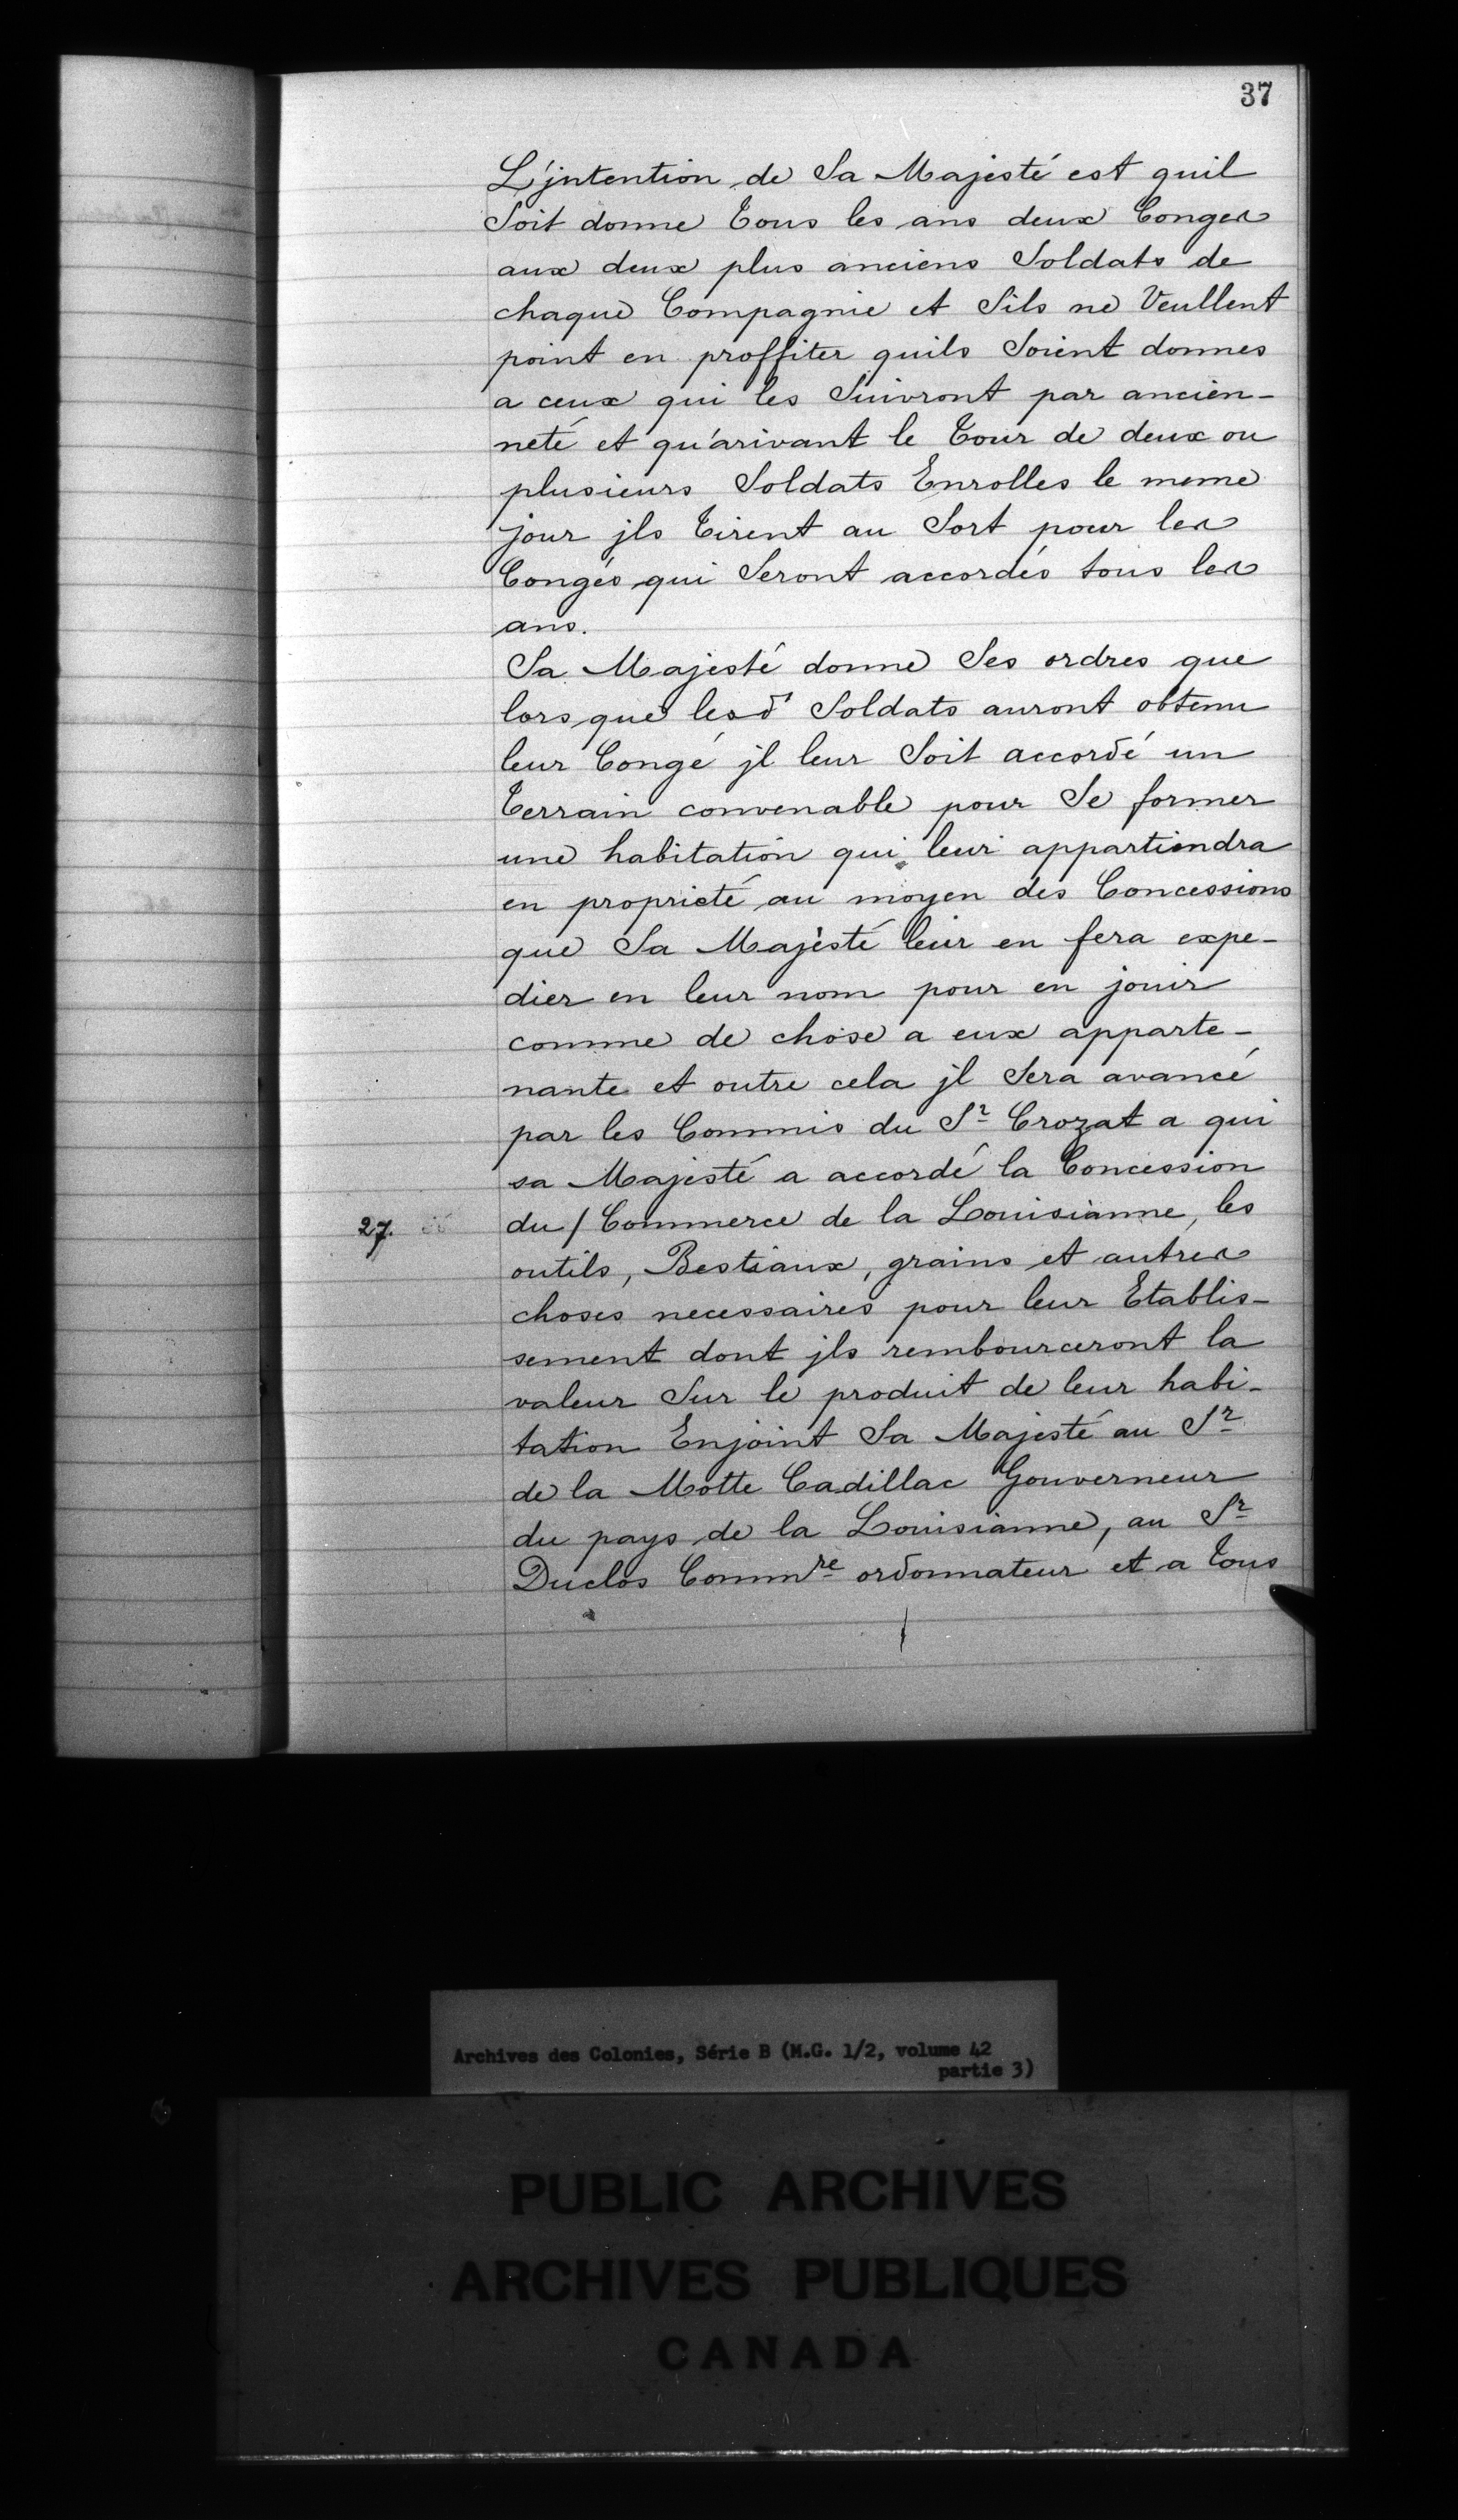 37
L'jntention de Sa Majesté est quil
Soit donne Tous les ans deux Conges
aux deux plus anciens Soldats de
chaque Compagnie et Sils ne Veullent
point en proffiter quils Soient donnes
a ceux qui les Suivront par ancien-
neté et qu'arivant le Tour de deux ou
plusieurs Soldats Enrolles le meme
jour jls Tirent au Sort pour les
Congés qui Seront accordés tous les
ans.
Sa Majesté donne Ses ordres que
lorsque lesd^t Soldats auront obtenu
leur Congé jl leur Soit accordé un
Terrain convenable pour Se former
une habitation qui leur appartiendra
en proprieté au moyen des Concessions
que Sa Majesté leur en fera expe-
dier en leur nom pour en jouir
comme de chose a eux apparte-
nante et outre cela jl Sera avancé
par les Commis du S^r Crozat a qui
sa Majesté a accordé la Concession
27. du / Commerce de la Louisianne, les
outils, Bestiaux, grains et autres
choses necessaires pour leur Etablis-
sement dont jls rembourceront la
valeur Sur le produit de leur habi-
tation Enjoint Sa Majesté au S^r
de la Motte Cadillac Gouverneur
du pays de la Louisianne, au S^r
Duclos Comm^re ordonnateur et a Tous
Archives des Colonies, Série B (M.G. 1/2, volume 42
partie 3)
PUBLIC ARCHIVES
ARCHIVES PUBLIQUES
CANADA